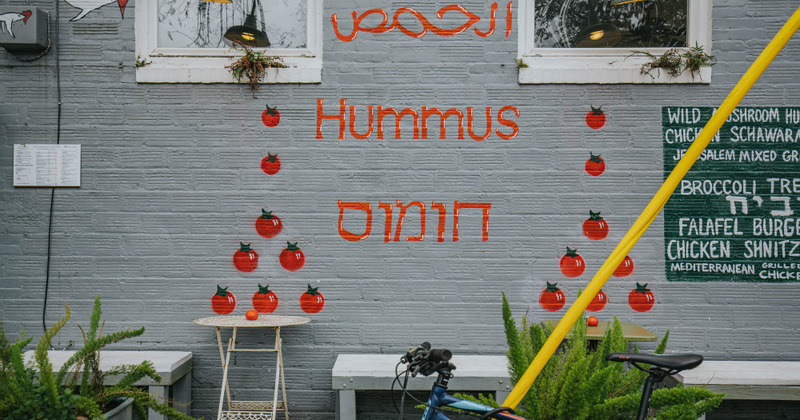 الحمص
Hummus
חומוס
WILD MUSHROOM HU
CHICKEN SCHAWARA
JERUSALEM MIXED GR
BROCCOLI TRE
FALAFEL BURGE
CHICKEN SHNITZ
MEDITERRANEAN GRILLED CHICKE